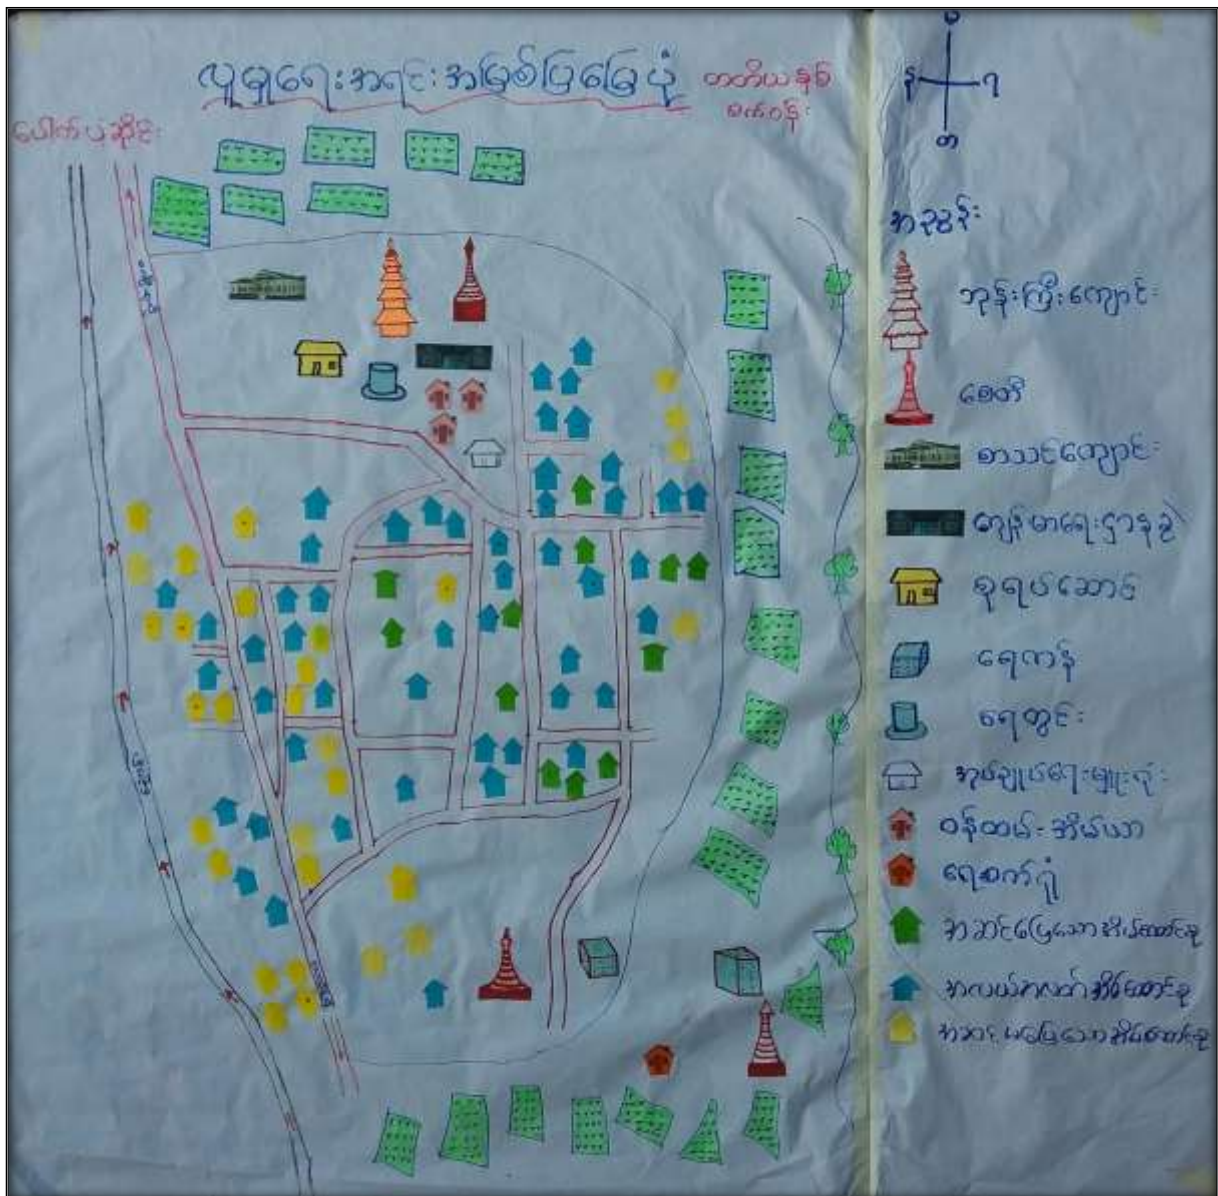 လူမှုရေးအရင်းအမြစ်ပြမြေပုံ
တတိယနှစ်
စက်ဝန်း
ပေါက်ပင်ဆိုင်း
န
တ
အညွှန်း
ဘုန်းကြီးကျောင်း
စေတီ
စာသင်ကျောင်း
ကျန်းမာရေးဌာနခွဲ
စုရပ်ဆောင်
ရေကန်
ရေတွင်း
အုပ်ချုပ်ရေးမှူးရုံး
ဝန်ထမ်းအိမ်ယာ
ရေစက်ရုံ
အဆင်ပြေသောအိမ်ထောင်စု
အလယ်အလတ်အိမ်ထောင်စု
အဆင်မပြေသောအိမ်ထောင်စု